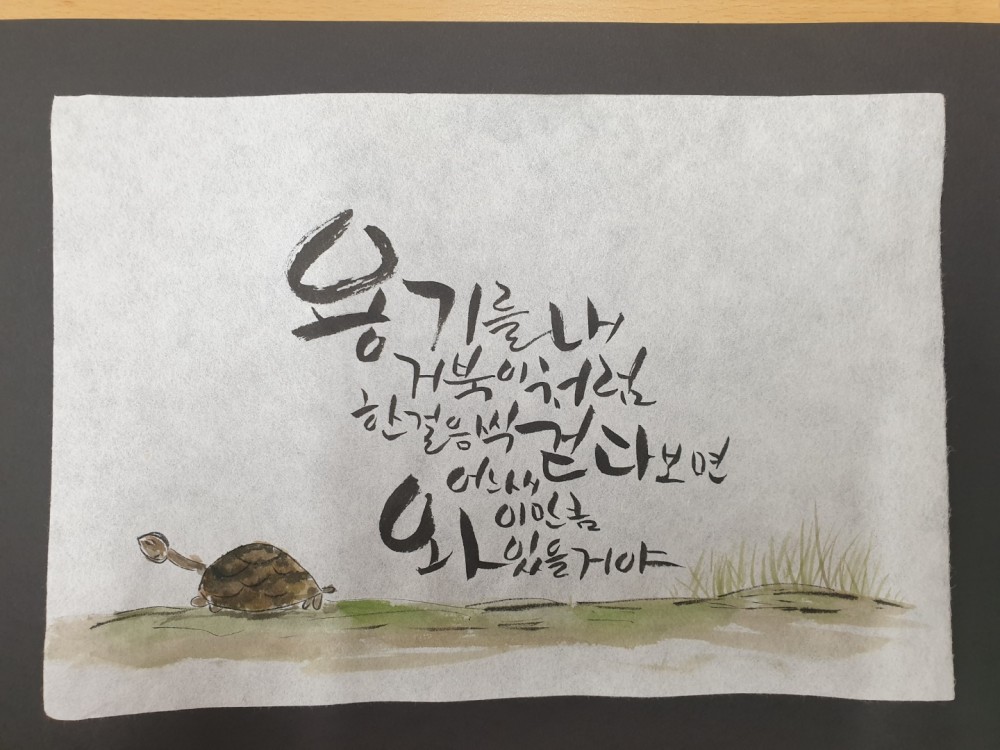 용기를 내
거북이처럼
한걸음씩 걷다보면
어느새
이만큼
와 있을거야